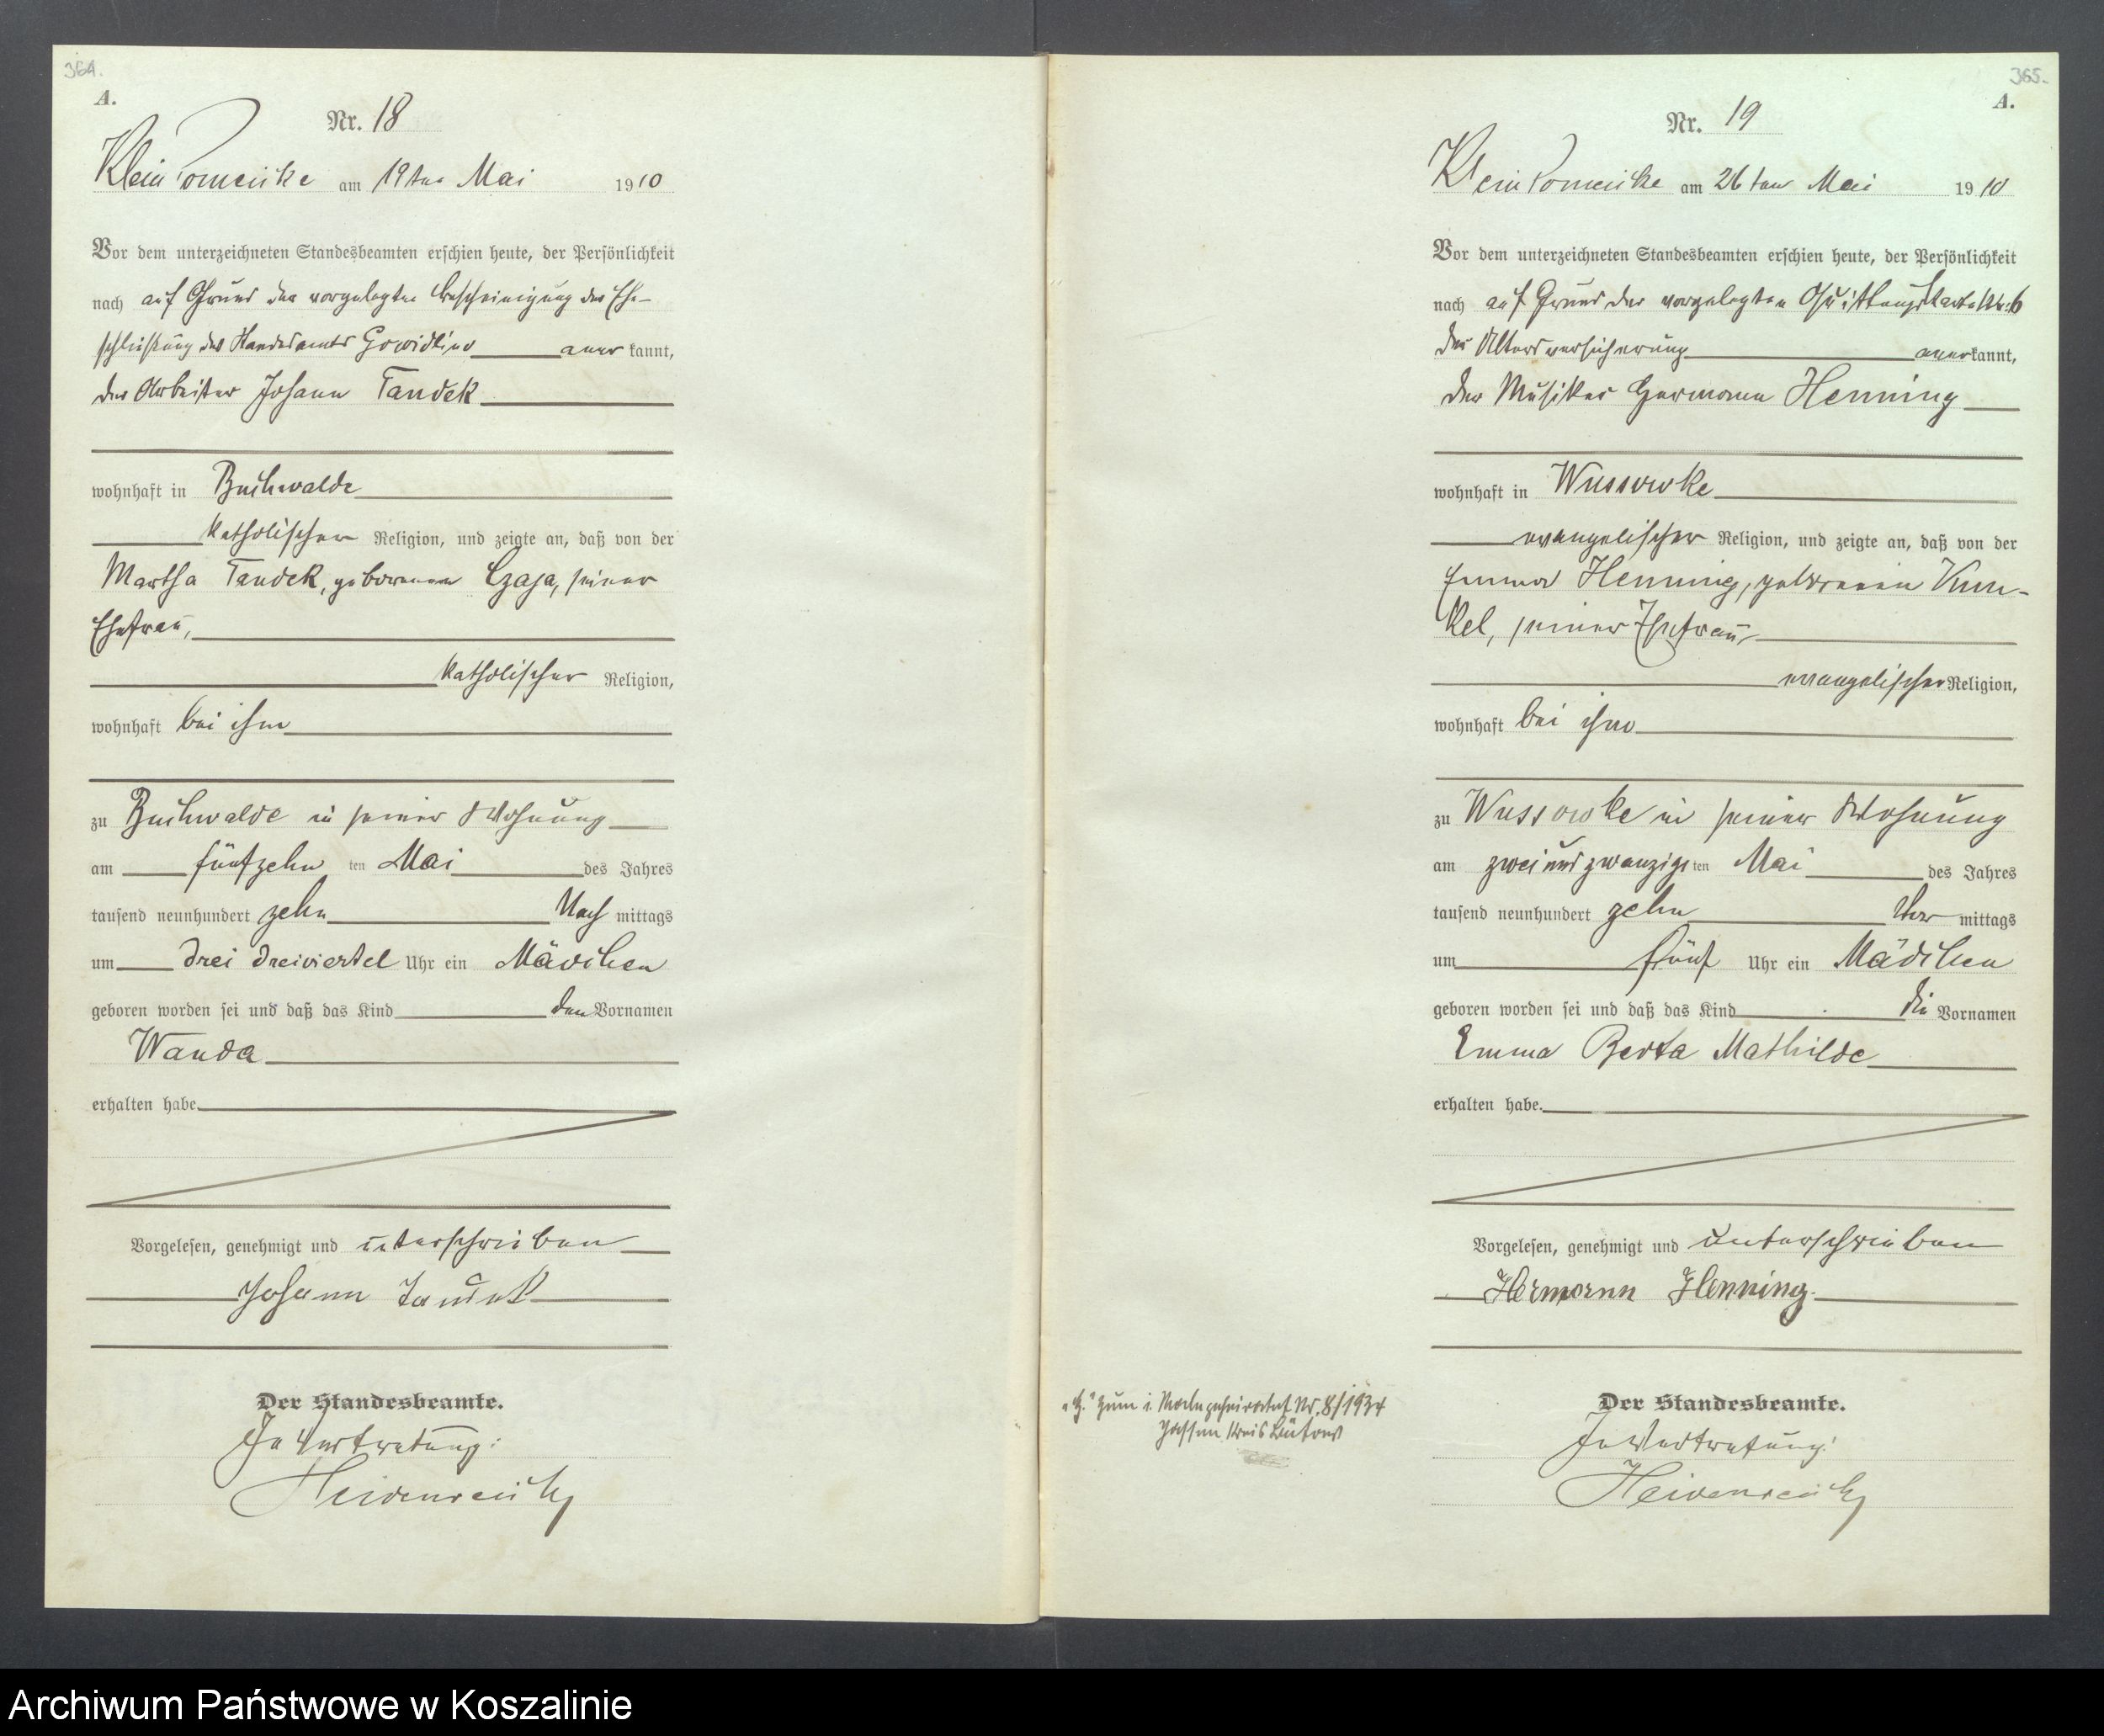 364.
A.
Nr. 18
Klein Pomeiske am 19ten Mai 1910
Vor dem unterzeichneten Standesbeamten erschien heute, der Persönlichkeit
nach auf Grund der vorgelegten Bescheinigung der Ehe-
schließung des Standesamts Gowidlino anerkannt,
der Arbeiter Johann Tandek
wohnhaft in Buchwalde
katholischer Religion, und zeigte an, daß von der
Martha Tandek, geborenen Czaja, seiner
Ehefrau,
katholischer Religion,
wohnhaft bei ihm
zu Buchwalde in seiner Wohnung
am fünfzehn ten Mai des Jahres
tausend neunhundert zehn Nach mittags
um drei dreiviertel Uhr ein Mädchen
geboren worden sei und daß das Kind den Vornamen
Wanda
erhalten habe.
Vorgelesen, genehmigt und unterschrieben
Johann Tandek
Der Standesbeamte.
In Vertretung:
Heidenreich
365.
A.
Nr. 19
Klein Pomeiske am 26ten Mai 1910
Vor dem unterzeichneten Standesbeamten erschien heute, der Persönlichkeit
nach auf Grund der vorgelegten Quittungskarte Nr. 6
der Altersversicherung anerkannt,
der Musiker Hermann Henning
wohnhaft in Wussowke
evangelischer Religion, und zeigte an, daß von der
Emma Henning, geborenen Kun-
kel, seiner Ehefrau,
evangelischer Religion,
wohnhaft bei ihm
zu Wussowke in seiner Wohnung
am zwei und zwanzigs ten Mai des Jahres
tausend neunhundert zehn Vor mittags
um fünf Uhr ein Mädchen
geboren worden sei und daß das Kind die Vornamen
Emma Berta Mathilde
erhalten habe.
Vorgelesen, genehmigt und unterschrieben
Hermann Henning.
Der Standesbeamte.
In Vertretung:
Heidenreich
zum i. Nr. 8/1934
Jassen Kreis Bütow
Archiwum Państwowe w Koszalinie